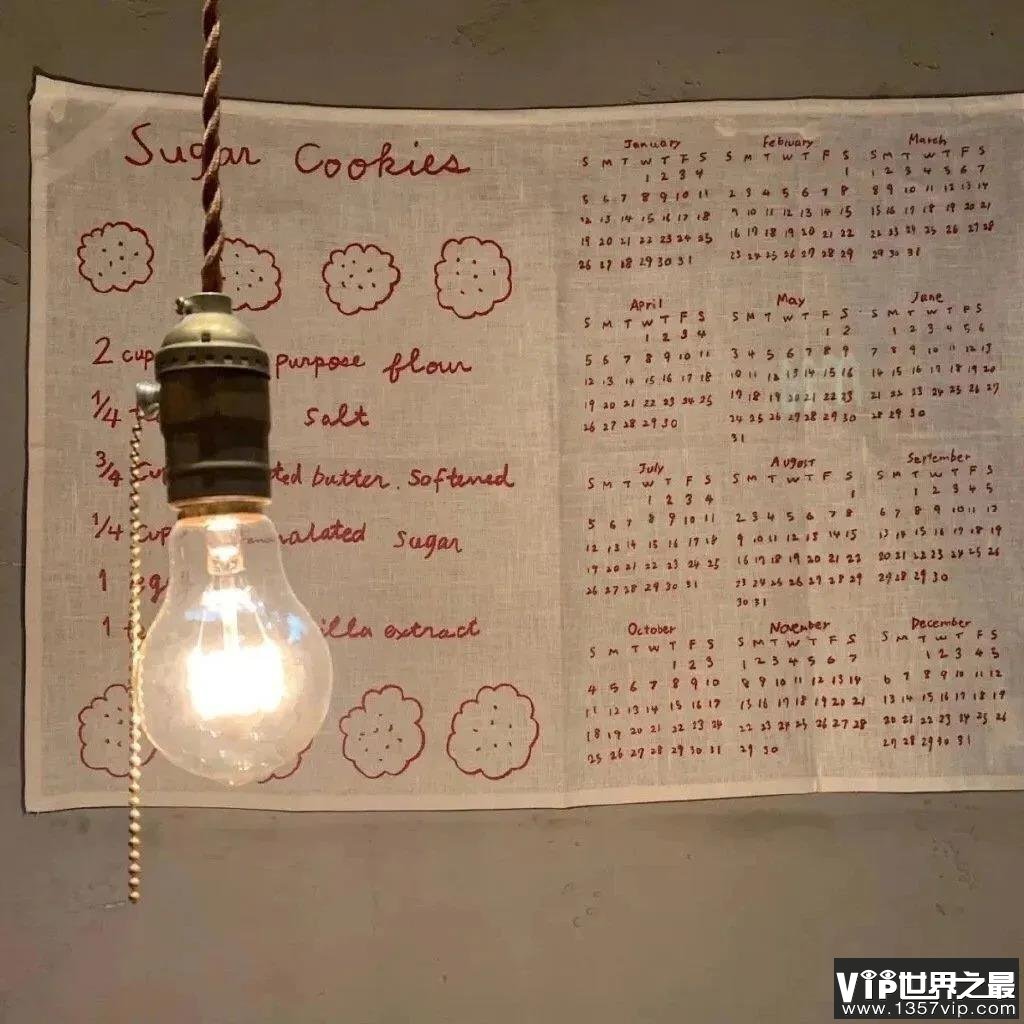 Sugar Cookies
2 cup purpose flour
1/4 salt
3/4 cup butter. Softened
1/4 cup sugar
1
1 extract
January
S M T W T F S
1 2 3 4
5 6 7 8 9 10 11
12 13 14 15 16 17 18
19 20 21 22 23 24 25
26 27 28 29 30 31
February
S M T W T F S
1
2 3 4 5 6 7 8
9 10 11 12 13 14 15
16 17 18 19 20 21 22
23 24 25 26 27 28 29
March
S M T W T F S
1 2 3 4 5 6 7
8 9 10 11 12 13 14
15 16 17 18 19 20 21
22 23 24 25 26 27 28
29 30 31
April
S M T W T F S
1 2 3 4
5 6 7 8 9 10 11
12 13 14 15 16 17 18
19 20 21 22 23 24 25
26 27 28 29 30
May
S M T W T F S
1 2
3 4 5 6 7 8 9
10 11 12 13 14 15 16
17 18 19 20 21 22 23
24 25 26 27 28 29 30
31
June
S M T W T F S
1 2 3 4 5 6
7 8 9 10 11 12 13
14 15 16 17 18 19 20
21 22 23 24 25 26 27
28 29 30
July
S M T W T F S
1 2 3 4
5 6 7 8 9 10 11
12 13 14 15 16 17 18
19 20 21 22 23 24 25
26 27 28 29 30 31
August
S M T W T F S
1
2 3 4 5 6 7 8
9 10 11 12 13 14 15
16 17 18 19 20 21 22
23 24 25 26 27 28 29
30 31
September
S M T W T F S
1 2 3 4 5
6 7 8 9 10 11 12
13 14 15 16 17 18 19
20 21 22 23 24 25 26
27 28 29 30
October
S M T W T F S
1 2 3
4 5 6 7 8 9 10
11 12 13 14 15 16 17
18 19 20 21 22 23 24
25 26 27 28 29 30 31
November
S M T W T F S
1 2 3 4 5 6 7
8 9 10 11 12 13 14
15 16 17 18 19 20 21
22 23 24 25 26 27 28
29 30
December
S M T W T F S
1 2 3 4 5
6 7 8 9 10 11 12
13 14 15 16 17 18 19
20 21 22 23 24 25 26
27 28 29 30 31
VIP世界之最
www.1357vip.com